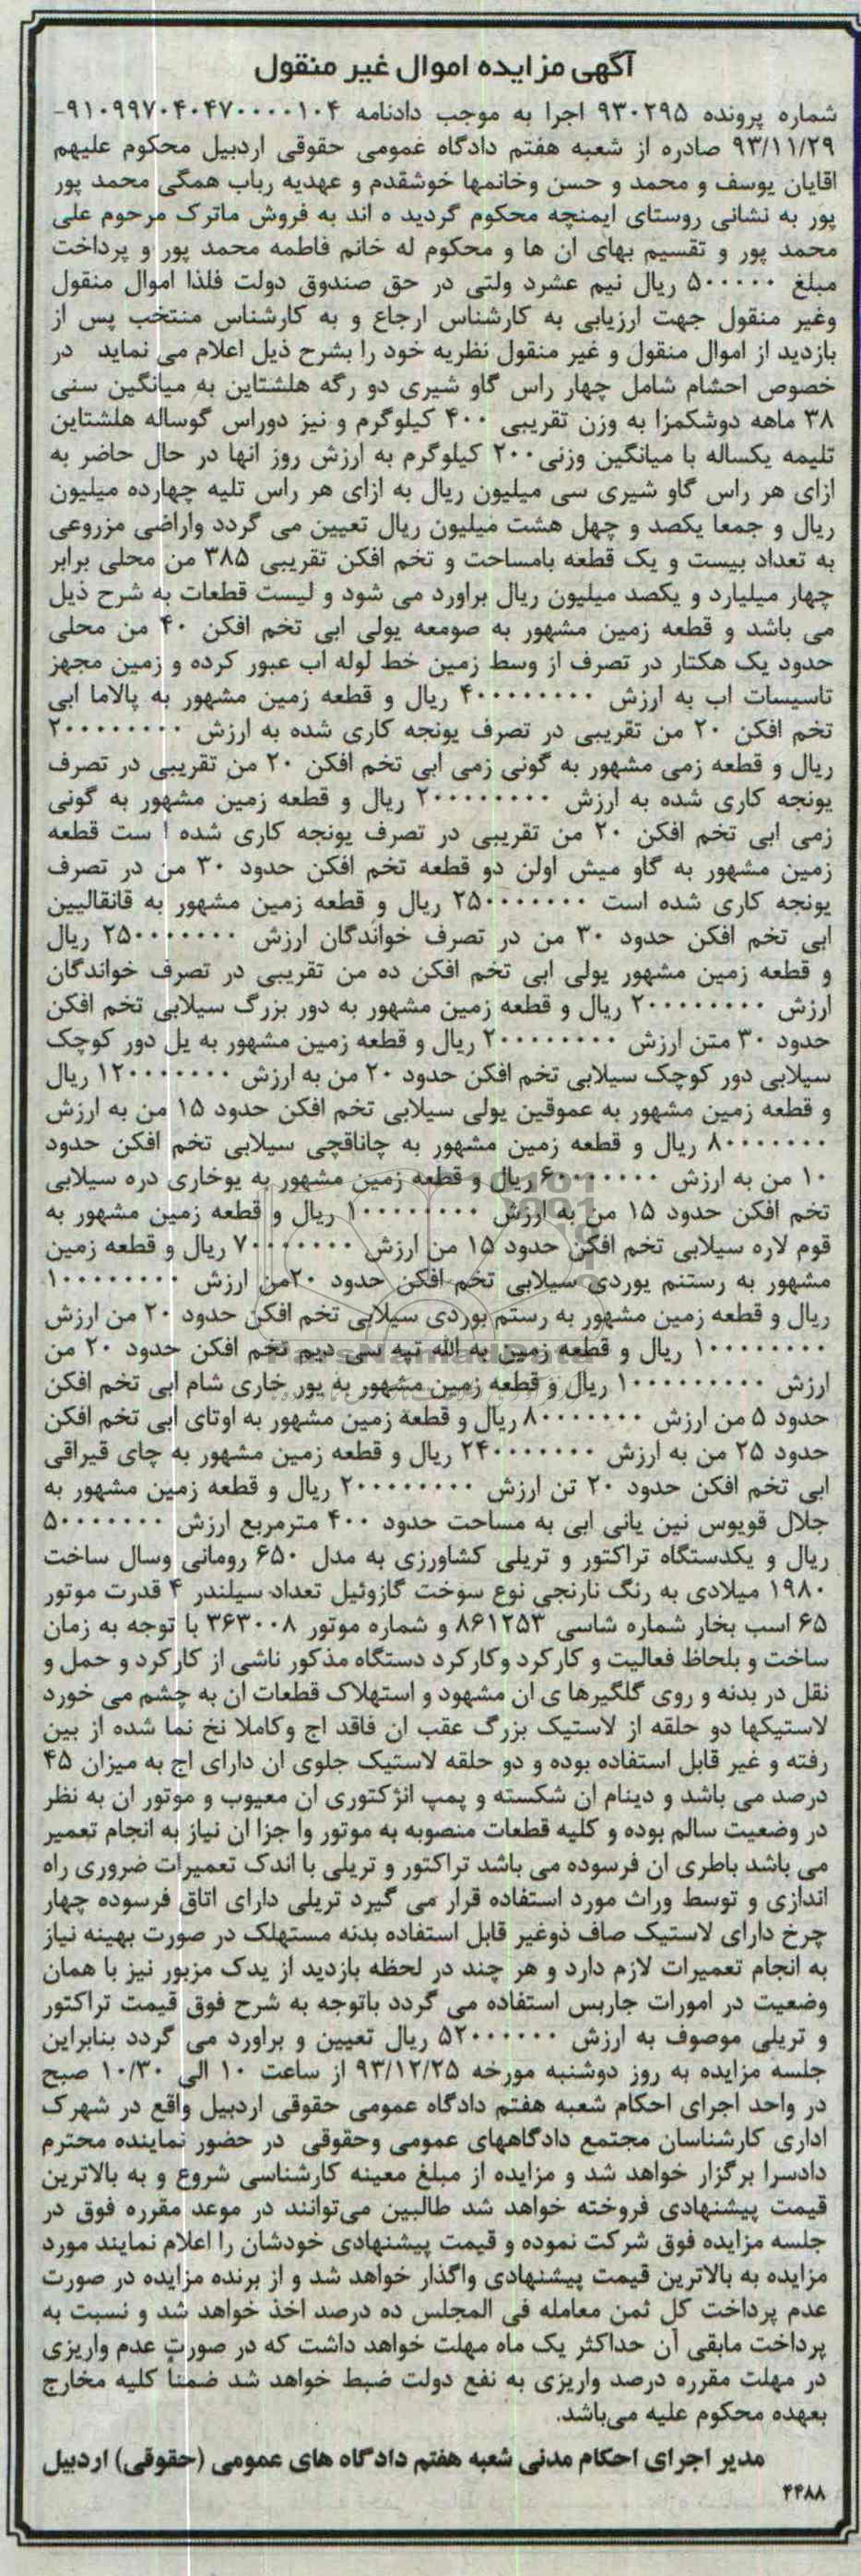 آگهی مزایده اموال غیر منقول
شماره پرونده ۹۳۰۲۹۵ اجرا به موجب دادنامه ۹۱۰۹۹۷۰۴۰۴۷۰۰۰۰۱۰۴-
۹۳/۱۱/۲۹ صادره از شعبه هفتم دادگاه عمومی حقوقی اردبیل محکوم علیهم
اقایان یوسف و محمد و حسن وخانمها خوشقدم و عهدیه رباب همگی محمد پور
پور به نشانی روستای ایمنچه محکوم گردید ه اند به فروش ماترک مرحوم علی
محمد پور و تقسیم بهای ان ها و محکوم له خانم فاطمه محمد پور و پرداخت
مبلغ ۵۰۰۰۰۰ ریال نیم عشرد ولتی در حق صندوق دولت فلذا اموال منقول
وغیر منقول جهت ارزیابی به کارشناس ارجاع و به کارشناس منتخب پس از
بازدید از اموال منقول و غیر منقول نظریه خود را بشرح ذیل اعلام می نماید در
خصوص احشام شامل چهار راس گاو شیری دو رگه هلشتاین به میانگین سنی
۳۸ ماهه دوشکمزا به وزن تقریبی ۴۰۰ کیلوگرم و نیز دوراس گوساله هلشتاین
تلیمه یکساله با میانگین وزنی۲۰۰ کیلوگرم به ارزش روز انها در حال حاضر به
ازای هر راس گاو شیری سی میلیون ریال به ازای هر راس تلیه چهارده میلیون
ریال و جمعا یکصد و چهل هشت میلیون ریال تعیین می گردد واراضی مزروعی
به تعداد بیست و یک قطعه بامساحت و تخم افکن تقریبی ۳۸۵ من محلی برابر
چهار میلیارد و یکصد میلیون ریال براورد می شود و لیست قطعات به شرح ذیل
می باشد و قطعه زمین مشهور به صومعه یولی ابی تخم افکن ۴۰ من محلی
حدود یک هکتار در تصرف از وسط زمین خط لوله اب عبور کرده و زمین مجهز
تاسیسات اب به ارزش ۴۰۰۰۰۰۰۰۰ ریال و قطعه زمین مشهور به پالاما ابی
تخم افکن ۲۰ من تقریبی در تصرف یونجه کاری شده به ارزش ۲۰۰۰۰۰۰۰۰
ریال و قطعه زمی مشهور به گونی زمی ابی تخم افکن ۲۰ من تقریبی در تصرف
یونجه کاری شده به ارزش ۲۰۰۰۰۰۰۰۰ ریال و قطعه زمین مشهور به گونی
زمی ابی تخم افکن ۲۰ من تقریبی در تصرف یونجه کاری شده ا ست قطعه
زمین مشهور به گاو میش اولن دو قطعه تخم افکن حدود ۳۰ من در تصرف
یونجه کاری شده است ۲۵۰۰۰۰۰۰۰ ریال و قطعه زمین مشهور به قانقالیین
ابی تخم افکن حدود ۳۰ من در تصرف خواندگان ارزش ۲۵۰۰۰۰۰۰۰ ریال
و قطعه زمین مشهور یولی ابی تخم افکن ده من تقریبی در تصرف خواندگان
ارزش ۲۰۰۰۰۰۰۰۰ ریال و قطعه زمین مشهور به دور بزرگ سیلابی تخم افکن
حدود ۳۰ متن ارزش ۲۰۰۰۰۰۰۰۰ ریال و قطعه زمین مشهور به یل دور کوچک
سیلابی دور کوچک سیلابی تخم افکن حدود ۲۰ من به ارزش ۱۲۰۰۰۰۰۰۰ ریال
و قطعه زمین مشهور به عموقین یولی سیلابی تخم افکن حدود ۱۵ من به ارزش
۸۰۰۰۰۰۰۰ ریال و قطعه زمین مشهور به چاناقچی سیلابی تخم افکن حدود
۱۰ من به ارزش ۶۰۰۰۰۰۰۰ ریال و قطعه زمین مشهور به یوخاری دره سیلابی
تخم افکن حدود ۱۵ من به ارزش ۱۰۰۰۰۰۰۰۰ ریال و قطعه زمین مشهور به
قوم لاره سیلابی تخم افکن حدود ۱۵ من ارزش ۷۰۰۰۰۰۰۰ ریال و قطعه زمین
مشهور به رستنم یوردی سیلابی تخم افکن حدود ۲۰من ارزش ۱۰۰۰۰۰۰۰۰
ریال و قطعه زمین مشهور به رستم یوردی سیلابی تخم افکن حدود ۲۰ من ارزش
۱۰۰۰۰۰۰۰۰ ریال و قطعه زمین به الله تپه سی دیم تخم افکن حدود ۲۰ من
ارزش ۱۰۰۰۰۰۰۰۰۰ ریال و قطعه زمین مشهور به یور خاری شام ابی تخم افکن
حدود ۵ من ارزش ۸۰۰۰۰۰۰۰ ریال و قطعه زمین مشهور به اوتای ابی تخم افکن
حدود ۲۵ من به ارزش ۲۴۰۰۰۰۰۰۰ ریال و قطعه زمین مشهور به چای قیراقی
ابی تخم افکن حدود ۲۰ تن ارزش ۲۰۰۰۰۰۰۰۰ ریال و قطعه زمین مشهور به
جلال قویوس نین یانی ابی به مساحت حدود ۴۰۰ مترمربع ارزش ۵۰۰۰۰۰۰۰
ریال و یکدستگاه تراکتور و تریلی کشاورزی به مدل ۶۵۰ رومانی وسال ساخت
۱۹۸۰ میلادی به رنگ نارنجی نوع سوخت گازوئیل تعداد سیلندر ۴ قدرت موتور
۶۵ اسب بخار شماره شاسی ۸۶۱۲۵۳ و شماره موتور ۳۶۳۰۰۸ با توجه به زمان
ساخت و بلحاظ فعالیت و کارکرد وکارکرد دستگاه مذکور ناشی از کارکرد و حمل و
نقل در بدنه و روی گلگیرها ی ان مشهود و استهلاک قطعات ان به چشم می خورد
لاستیکها دو حلقه از لاستیک بزرگ عقب ان فاقد اج وکاملا نخ نما شده از بین
رفته و غیر قابل استفاده بوده و دو حلقه لاستیک جلوی ان دارای اج به میزان ۴۵
درصد می باشد و دینام ان شکسته و پمپ انژکتوری ان معیوب و موتور ان به نظر
در وضعیت سالم بوده و کلیه قطعات منصوبه به موتور وا جزا ان نیاز به انجام تعمیر
می باشد باطری ان فرسوده می باشد تراکتور و تریلی با اندک تعمیرات ضروری راه
اندازی و توسط وراث مورد استفاده قرار می گیرد تریلی دارای اتاق فرسوده چهار
چرخ دارای لاستیک صاف ذوغیر قابل استفاده بدنه مستهلک در صورت بهینه نیاز
به انجام تعمیرات لازم دارد و هر چند در لحظه بازدید از یدک مزبور نیز با همان
وضعیت در امورات جاریس استفاده می گردد باتوجه به شرح فوق قیمت تراکتور
و تریلی موصوف به ارزش ۵۲۰۰۰۰۰۰ ریال تعیین و براورد می گردد بنابراین
جلسه مزایده به روز دوشنبه مورخه ۹۳/۱۲/۲۵ از ساعت ۱۰ الی ۱۰/۳۰ صبح
در واحد اجرای احکام شعبه هفتم دادگاه عمومی حقوقی اردبیل واقع در شهرک
اداری کارشناسان مجتمع دادگاههای عمومی وحقوقی در حضور نماینده محترم
دادسرا برگزار خواهد شد و مزایده از مبلغ معینه کارشناسی شروع و به بالاترین
قیمت پیشنهادی فروخته خواهد شد طالبین می‌توانند در موعد مقرره فوق در
جلسه مزایده فوق شرکت نموده و قیمت پیشنهادی خودشان را اعلام نمایند مورد
مزایده به بالاترین قیمت پیشنهادی واگذار خواهد شد و از برنده مزایده در صورت
عدم پرداخت کل ثمن معامله فی المجلس ده درصد اخذ خواهد شد و نسبت به
پرداخت مابقی آن حداکثر یک ماه مهلت خواهد داشت که در صورت عدم واریزی
در مهلت مقرره درصد واریزی به نفع دولت ضبط خواهد شد ضمناً کلیه مخارج
بعهده محکوم علیه می‌باشد.
مدیر اجرای احکام مدنی شعبه هفتم دادگاه های عمومی (حقوقی) اردبیل
۴۴۸۸